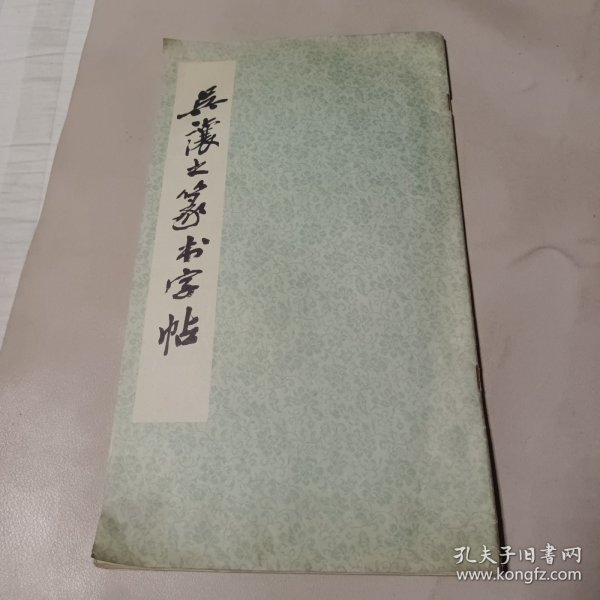 吴让之篆书字帖
孔夫子旧書网
www.kongfz.com